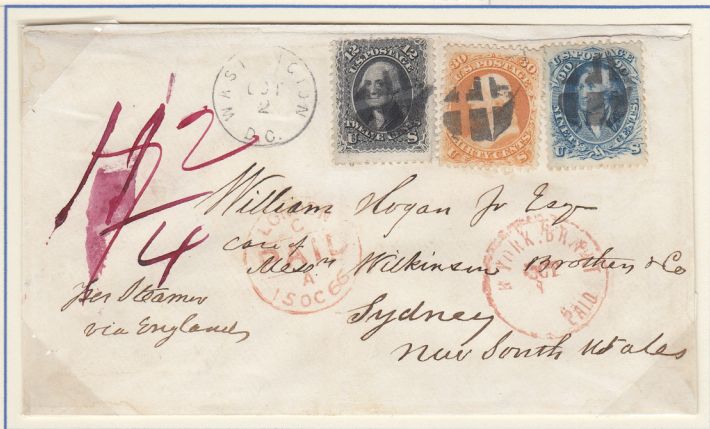 WASHINGTON
OCT
2
D.C.
12 12
U.S. POSTAGE
TWELVE CENTS
U S
30 30
U.S. POSTAGE
THIRTY CENTS
U S
90 90
U.S. POSTAGE
NINETY CENTS
U S
112
4
William Hogan Jr Esq
Care of
Messrs Wilkinson Brothers & Co
Sydney
New South Wales
Per Steamer
via England
LONDON
C
PAID
A
15 OC 66
N. YORK. BR. PKT
OCT
PAID